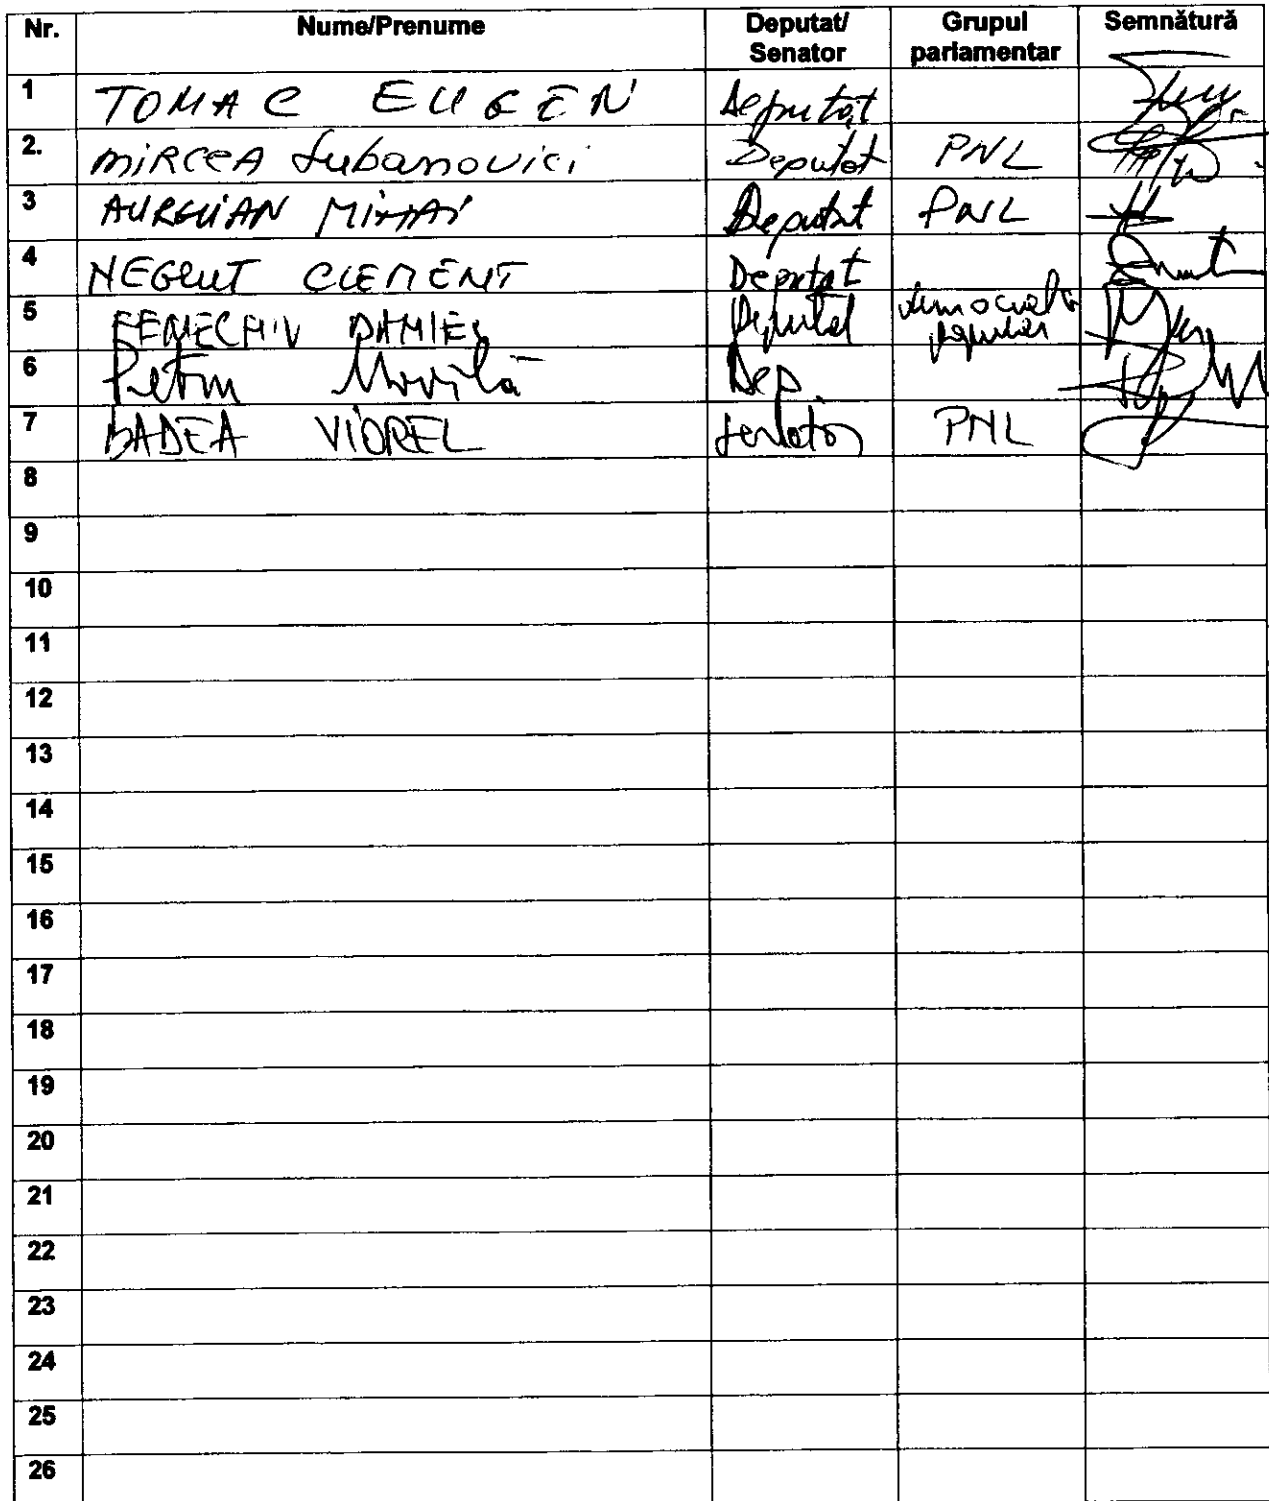 Nr. Nume/Prenume Deputat/ Senator Grupul parlamentar Semnătură
1 TOMAC EUGEN Deputat
2. MIRCEA Lubanovici Deputat PNL
3 AURELIAN MIHAI Deputat PNL
4 NEGRUT CLEMENT Deputat
5 FENECHIV DANIEL Deputat democrat popular
6 Petru Movilă Dep
7 BADEA VIOREL senator PNL
8
9
10
11
12
13
14
15
16
17
18
19
20
21
22
23
24
25
26